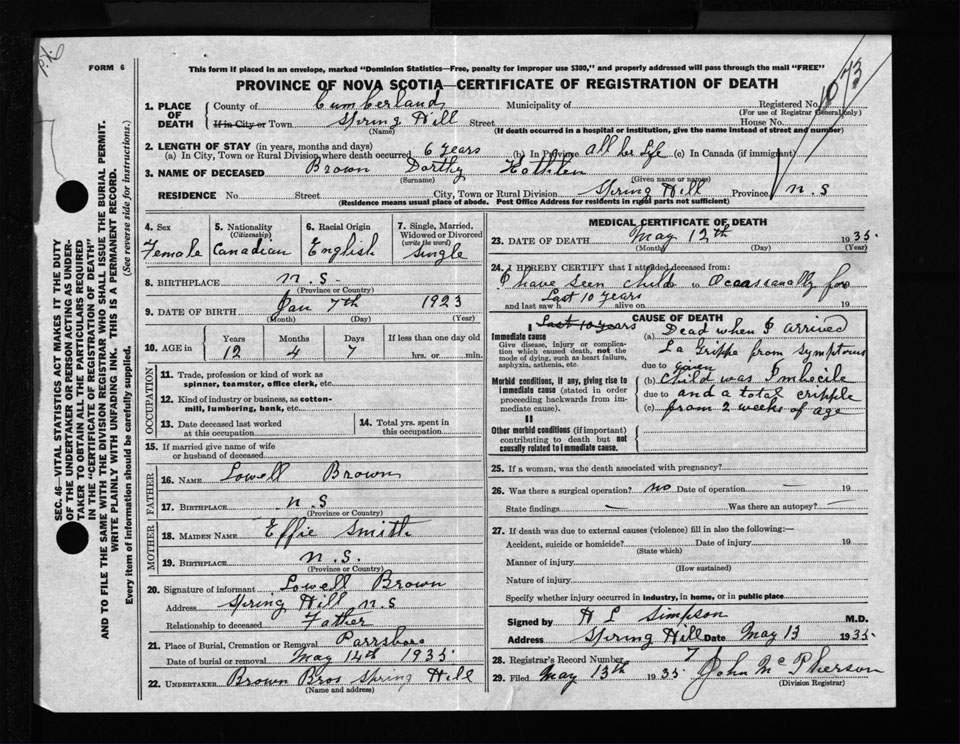 P.X.6
FORM 6
This form if placed in an envelope, marked "Dominion Statistics—Free, penalty for improper use $300," and properly addressed will pass through the mail "FREE"
PROVINCE OF NOVA SCOTIA—CERTIFICATE OF REGISTRATION OF DEATH
1073
1. PLACE OF DEATH
County of Cumberland Municipality of Registered No.
(For use of Registrar General only)
If in City or Town Spring Hill Street House No.
(Name) (If death occurred in a hospital or institution, give the name instead of street and number)
2. LENGTH OF STAY (in years, months and days)
(a) In City, Town or Rural Division where death occurred 6 years (b) In Province All her Life (c) In Canada (if immigrant)
3. NAME OF DECEASED Brown Dorthy Kathlen
(Surname) (Given name or names)
RESIDENCE No. Street City, Town or Rural Division Spring Hill Province N.S
(Residence means usual place of abode. Post Office Address for residents in rural parts not sufficient)
4. Sex Female
5. Nationality (Citizenship) Canadian
6. Racial Origin English
7. Single, Married, Widowed or Divorced (write the word) Single
8. BIRTHPLACE N.S.
(Province or Country)
9. DATE OF BIRTH Jan 7th 1923
(Month) (Day) (Year)
10. AGE in Years 12 Months 4 Days 7 If less than one day old hrs. or min.
OCCUPATION
11. Trade, profession or kind of work as spinner, teamster, office clerk, etc.
12. Kind of industry or business, as cotton-mill, lumbering, bank, etc.
13. Date deceased last worked at this occupation
14. Total yrs. spent in this occupation
15. If married give name of wife or husband of deceased
FATHER
16. NAME Lowell Brown
17. BIRTHPLACE N.S
(Province or Country)
MOTHER
18. MAIDEN NAME Effie Smith
19. BIRTHPLACE N.S.
(Province or Country)
20. Signature of informant Lowell Brown
Address Spring Hill N.S
Relationship to deceased Father
21. Place of Burial, Cremation or Removal Parrsboro
Date of burial or removal May 14th 1935
22. UNDERTAKER Brown Bros Spring Hill
(Name and address)
MEDICAL CERTIFICATE OF DEATH
23. DATE OF DEATH May 12th 1935
(Month) (Day) (Year)
24. I HEREBY CERTIFY that I attended deceased from:
I have seen child to Ocassanally for
and last saw h Last 10 years alive on 19
CAUSE OF DEATH
I Last 10 years
Immediate cause
Give disease, injury or complication which caused death, not the mode of dying, such as heart failure, asphyxia, asthenia, etc.
(a) Dead when I arrived
La Grippe from symptoms
due to given
Morbid conditions, if any, giving rise to immediate cause (stated in order proceeding backwards from immediate cause).
(b) Child was Imbecile
due to and a total cripple
(c) from 2 weeks of age
II
Other morbid conditions (if important) contributing to death but not causally related to immediate cause.
25. If a woman, was the death associated with pregnancy?
26. Was there a surgical operation? no Date of operation — 19
State findings — Was there an autopsy? —
27. If death was due to external causes (violence) fill in also the following:—
Accident, suicide or homicide? Date of injury 19
(State which)
Manner of injury
(How sustained)
Nature of injury
Specify whether injury occurred in industry, in home, or in public place
Signed by H L Simpson M.D.
Address Spring Hill Date May 13 1935.
28. Registrar's Record Number 7
29. Filed May 13th 1935 John McPherson
(Division Registrar)
SEC. 46—VITAL STATISTICS ACT MAKES IT THE DUTY
OF THE UNDERTAKER OR PERSON ACTING AS UNDER-
TAKER TO OBTAIN ALL THE PARTICULARS REQUIRED
IN THE "CERTIFICATE OF REGISTRATION OF DEATH"
AND TO FILE THE SAME WITH THE DIVISION REGISTRAR WHO SHALL ISSUE THE BURIAL PERMIT.
WRITE PLAINLY WITH UNFADING INK. THIS IS A PERMANENT RECORD.
Every item of information should be carefully supplied. (See reverse side for instructions.)